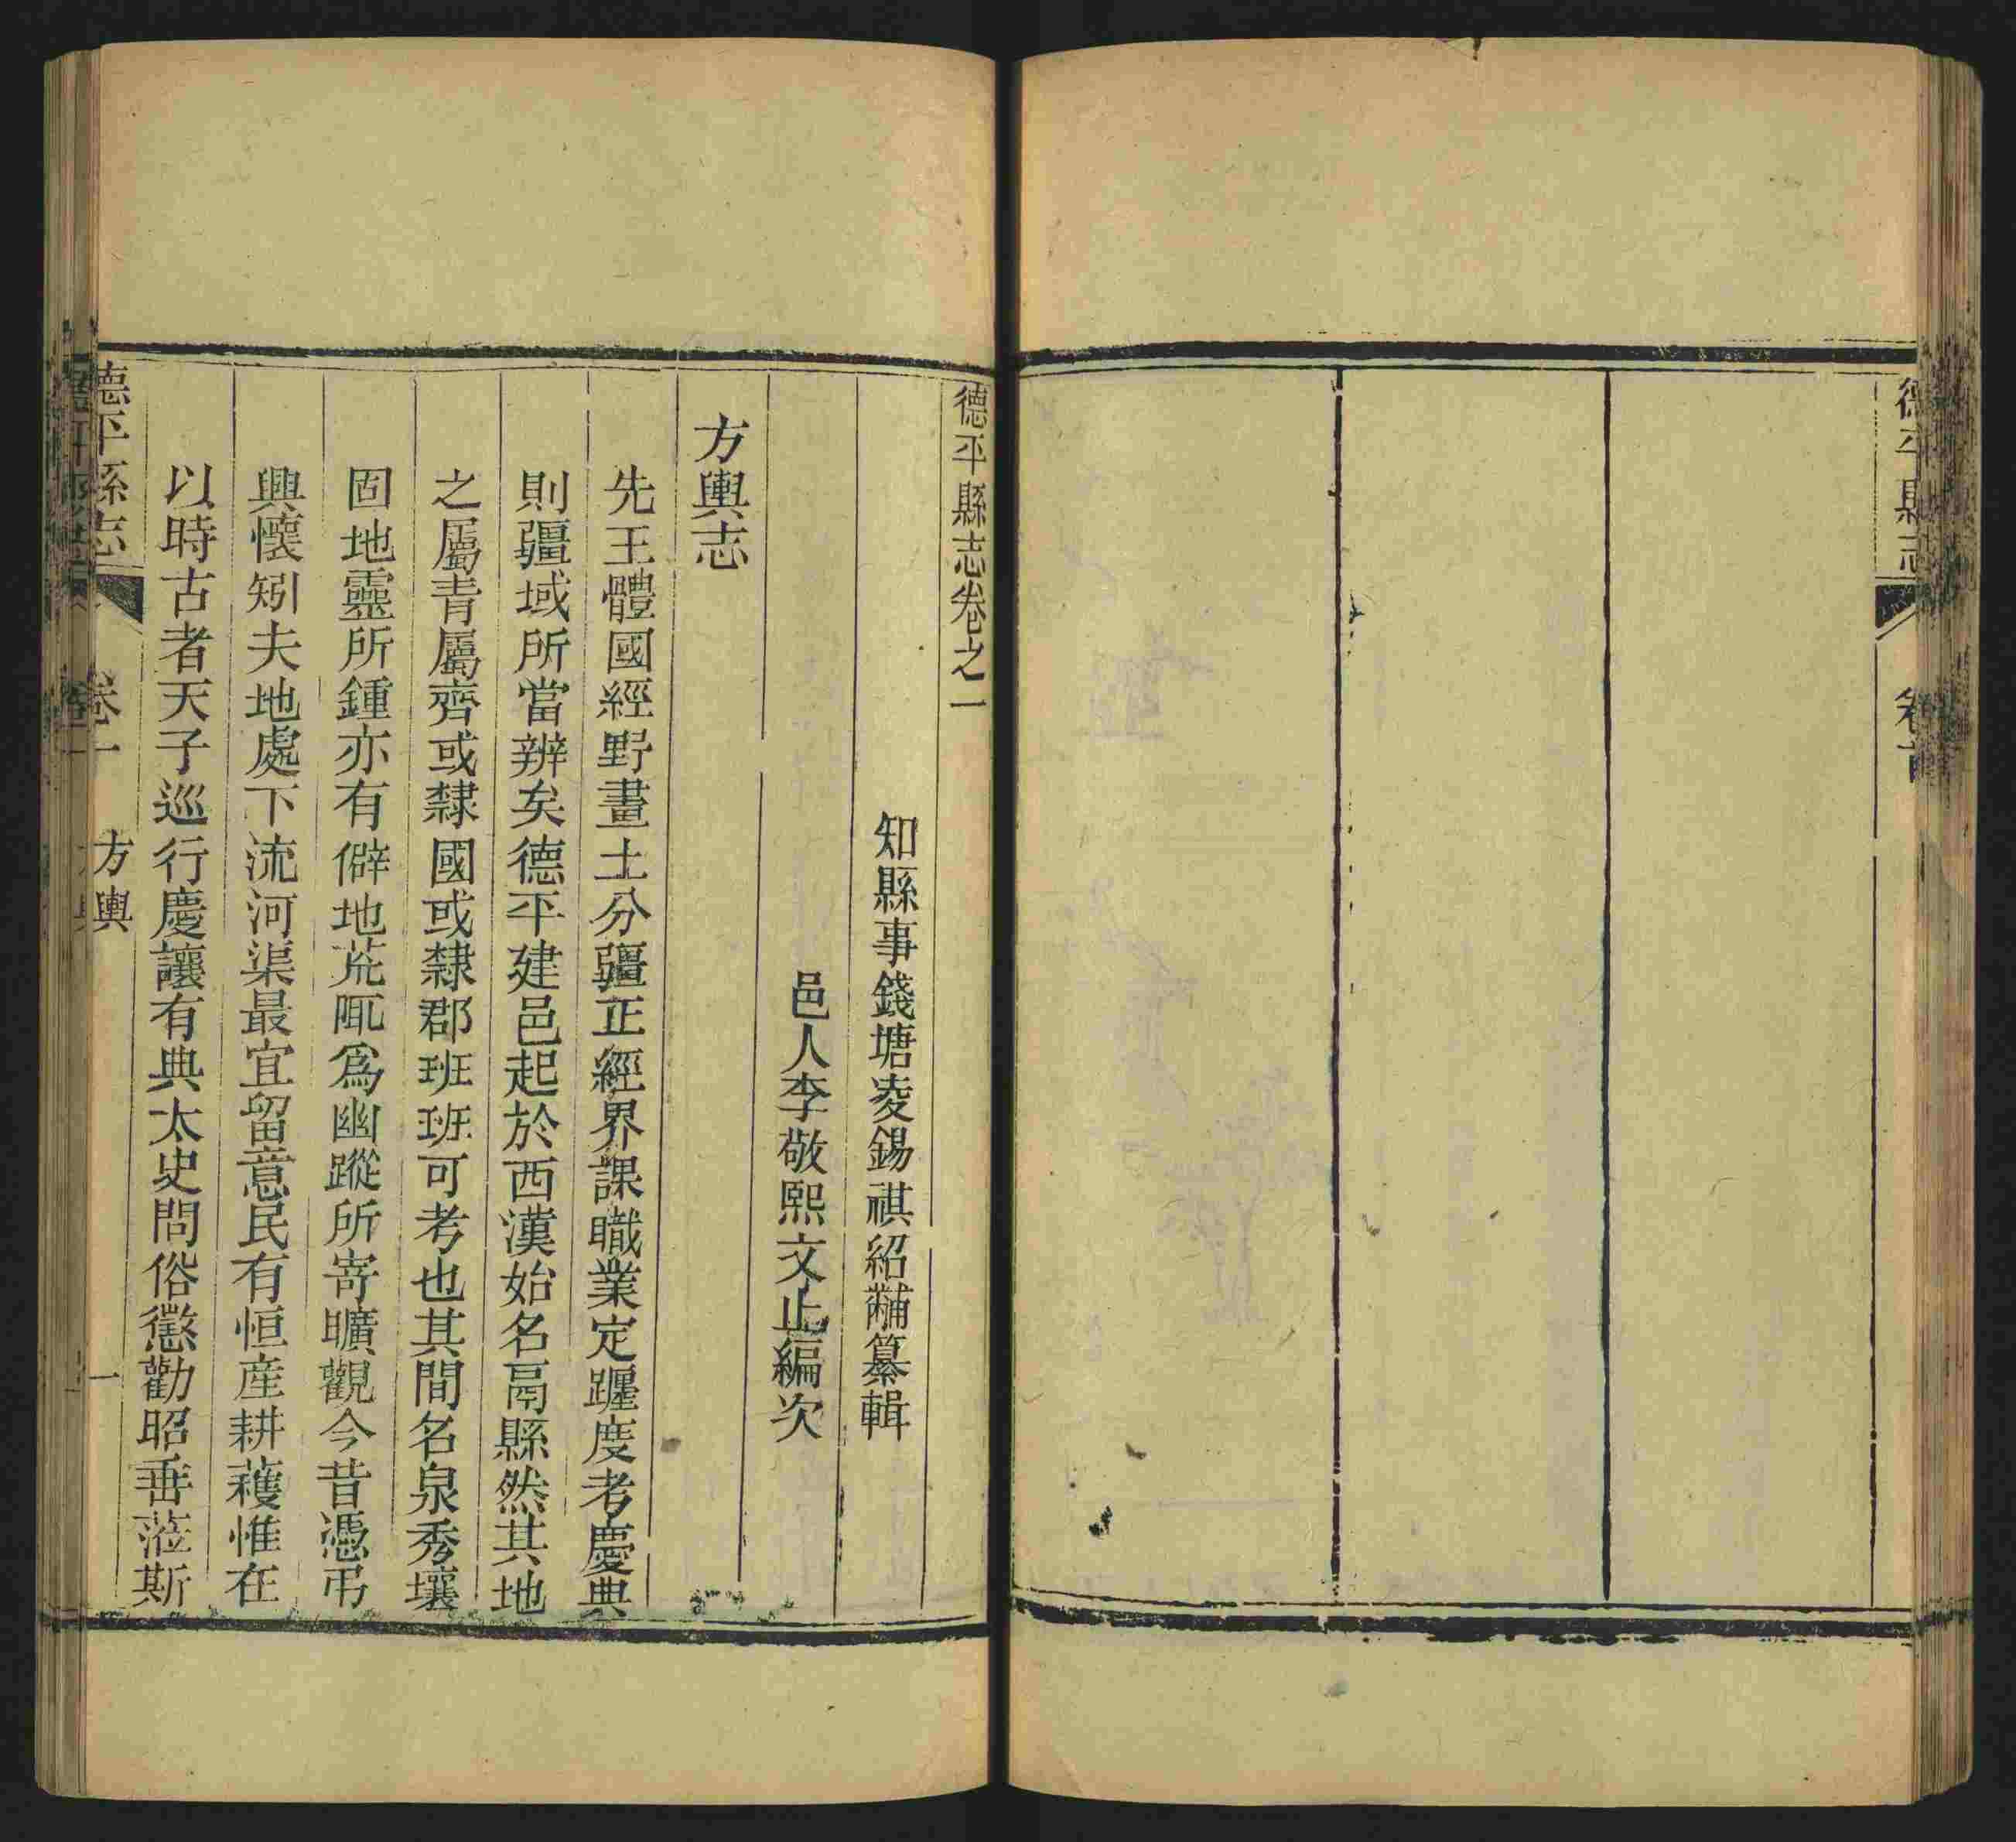 德平縣志
卷首
德平縣志卷之一
知縣事錢塘凌錫祺紹黼纂輯
邑人李敬熙文止編次
方輿志
先王體國經野畫土分疆正經界課職業定躔度考慶典
則疆域所當辨矣德平建邑起於西漢始名鬲縣然其地
之屬青屬齊或隸國或隸郡班班可考也其間名泉秀壤
固地靈所鍾亦有僻地荒陬爲幽蹤所寄曠觀今昔憑弔
興懷矧夫地處下流河渠最宜留意民有恒産耕穫惟在
以時古者天子巡行慶讓有典太史問俗懲勸昭垂蒞斯
德平縣志
卷一
方輿
一